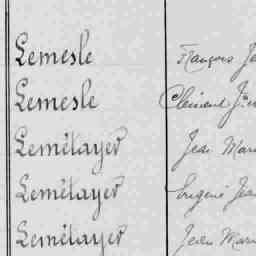 Lemesle François Je
Lemesle Clément J
Lemétayer Jean Mari
Lemétayer Eugène Jea
Lemétayer Jean Mari